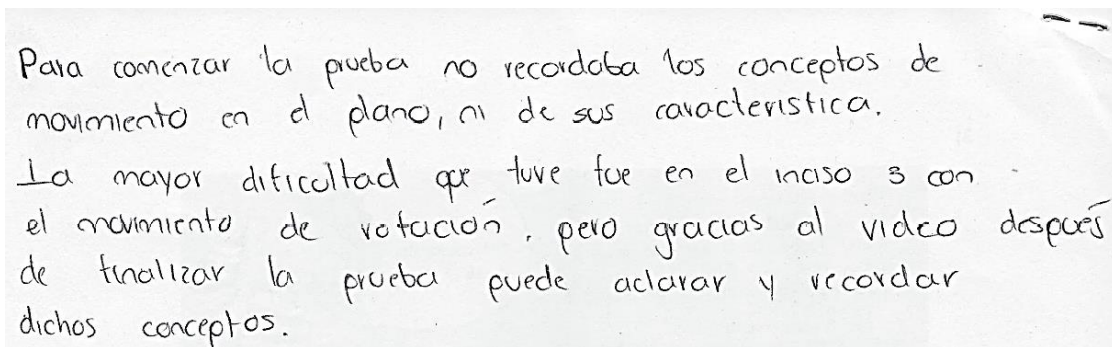 Para comenzar la prueba no recordaba los conceptos de
movimiento en el plano, ni de sus caracteristica.
La mayor dificultad que tuve fue en el inciso 3 con
el movimiento de rotación, pero gracias al video después
de finalizar la prueba puede aclarar y recordar
dichos conceptos.